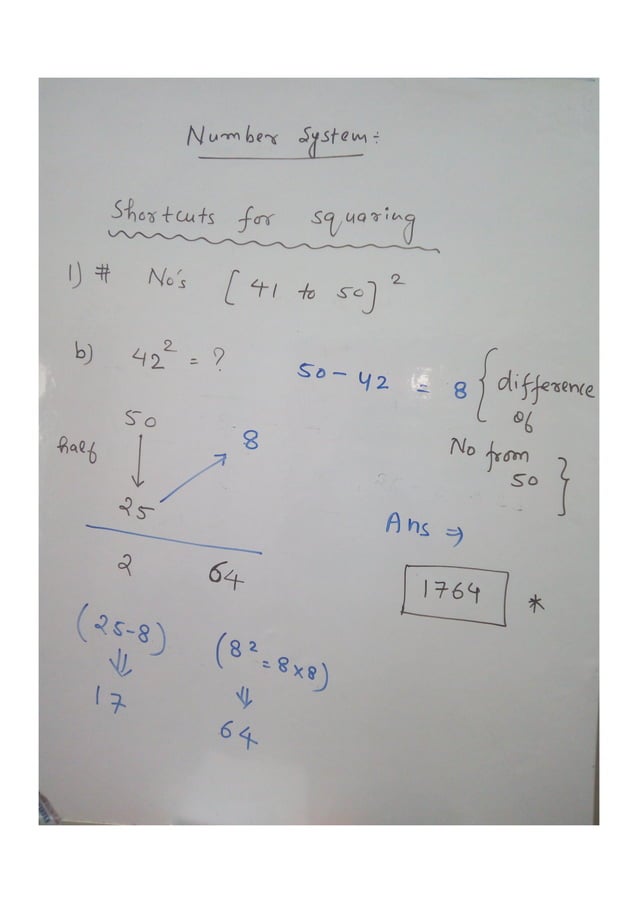 Number System :-
Shortcuts for squaring
1) # No's [41 to 50]²
b) 42² = ?
50 - 42 = 8 { difference
of
No from
50 }
50
half
8
25
2 64
(25-8)
⇓
17
(8² = 8x8)
⇓
64
Ans ⇒
1764 *